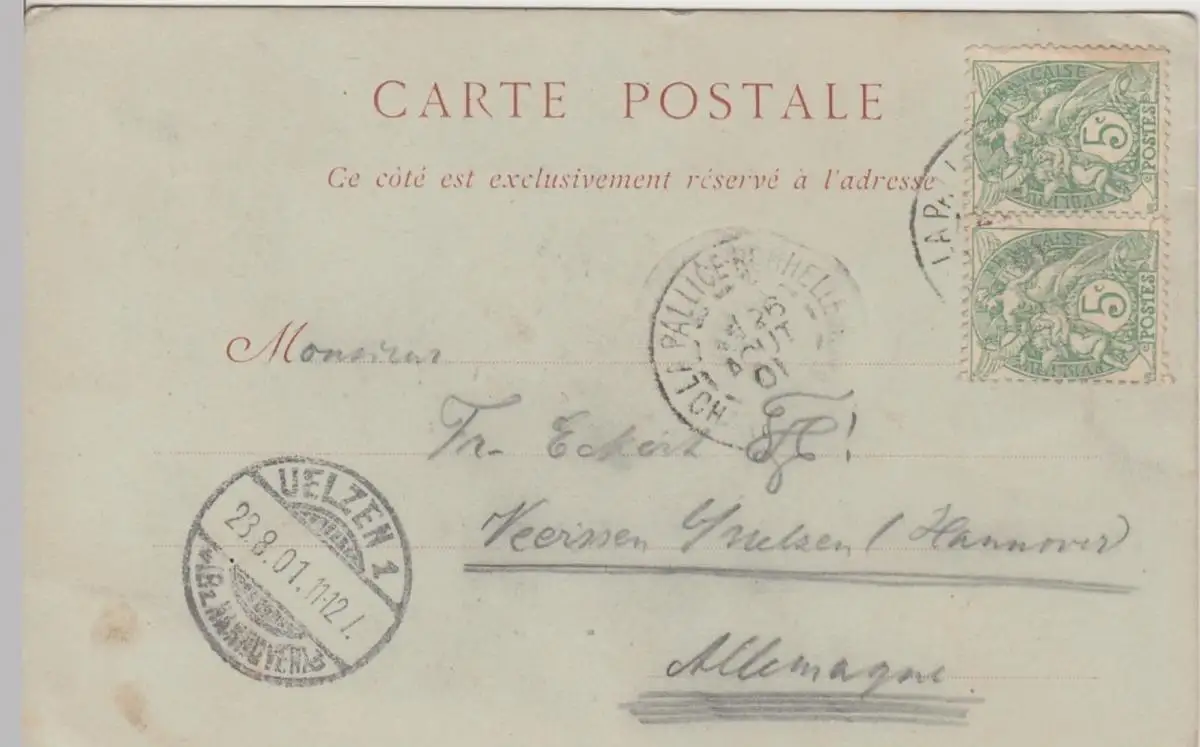 CARTE POSTALE
Ce côté est exclusivement réservé à l'adresse
FRANÇAISE
5c
POSTES
FRANÇAISE
5c
POSTES
LA PA
LA PALLICE-ROCHELLE
AOUT
01
Monsieur
Fr. Eckert
Veerssen / Uelzen (Hannover)
Allemagne
UELZEN 1
23.8.01.11-12
(Bz. HANNOVER)